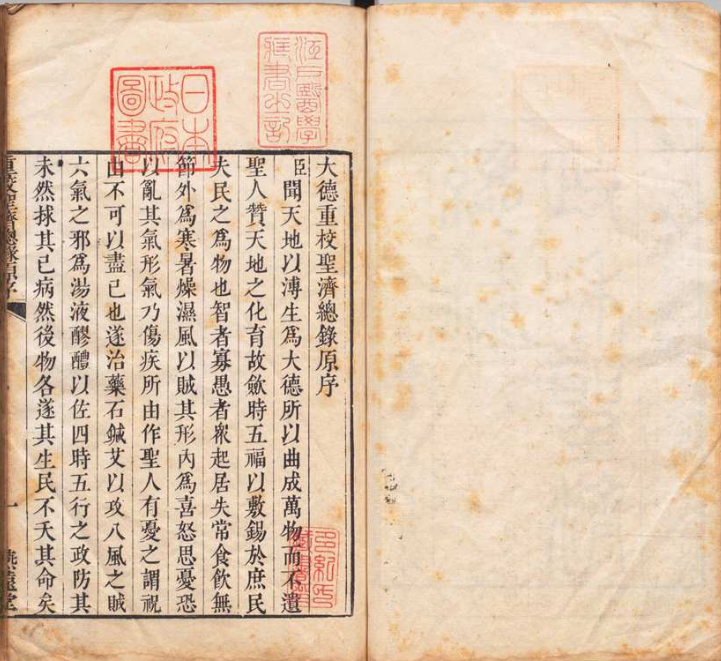 江戶醫學
藏書之記
日本
政府
圖書
大德重校聖濟總錄原序
臣聞天地以溥生爲大德所以曲成萬物而不遺
聖人贊天地之化育故歛時五福以敷錫於庶民
夫民之爲物也智者寡愚者衆起居失常食飲無
節外爲寒暑燥濕風以賊其形內爲喜怒思憂恐
以亂其氣形氣乃傷疾所由作聖人有憂之謂祝
由不可以盡已也遂治藥石鍼艾以攻八風之賊
六氣之邪爲湯液醪醴以佐四時五行之政防其
未然捄其已病然後物各遂其生民不夭其命矣
重校聖濟總錄原序
一